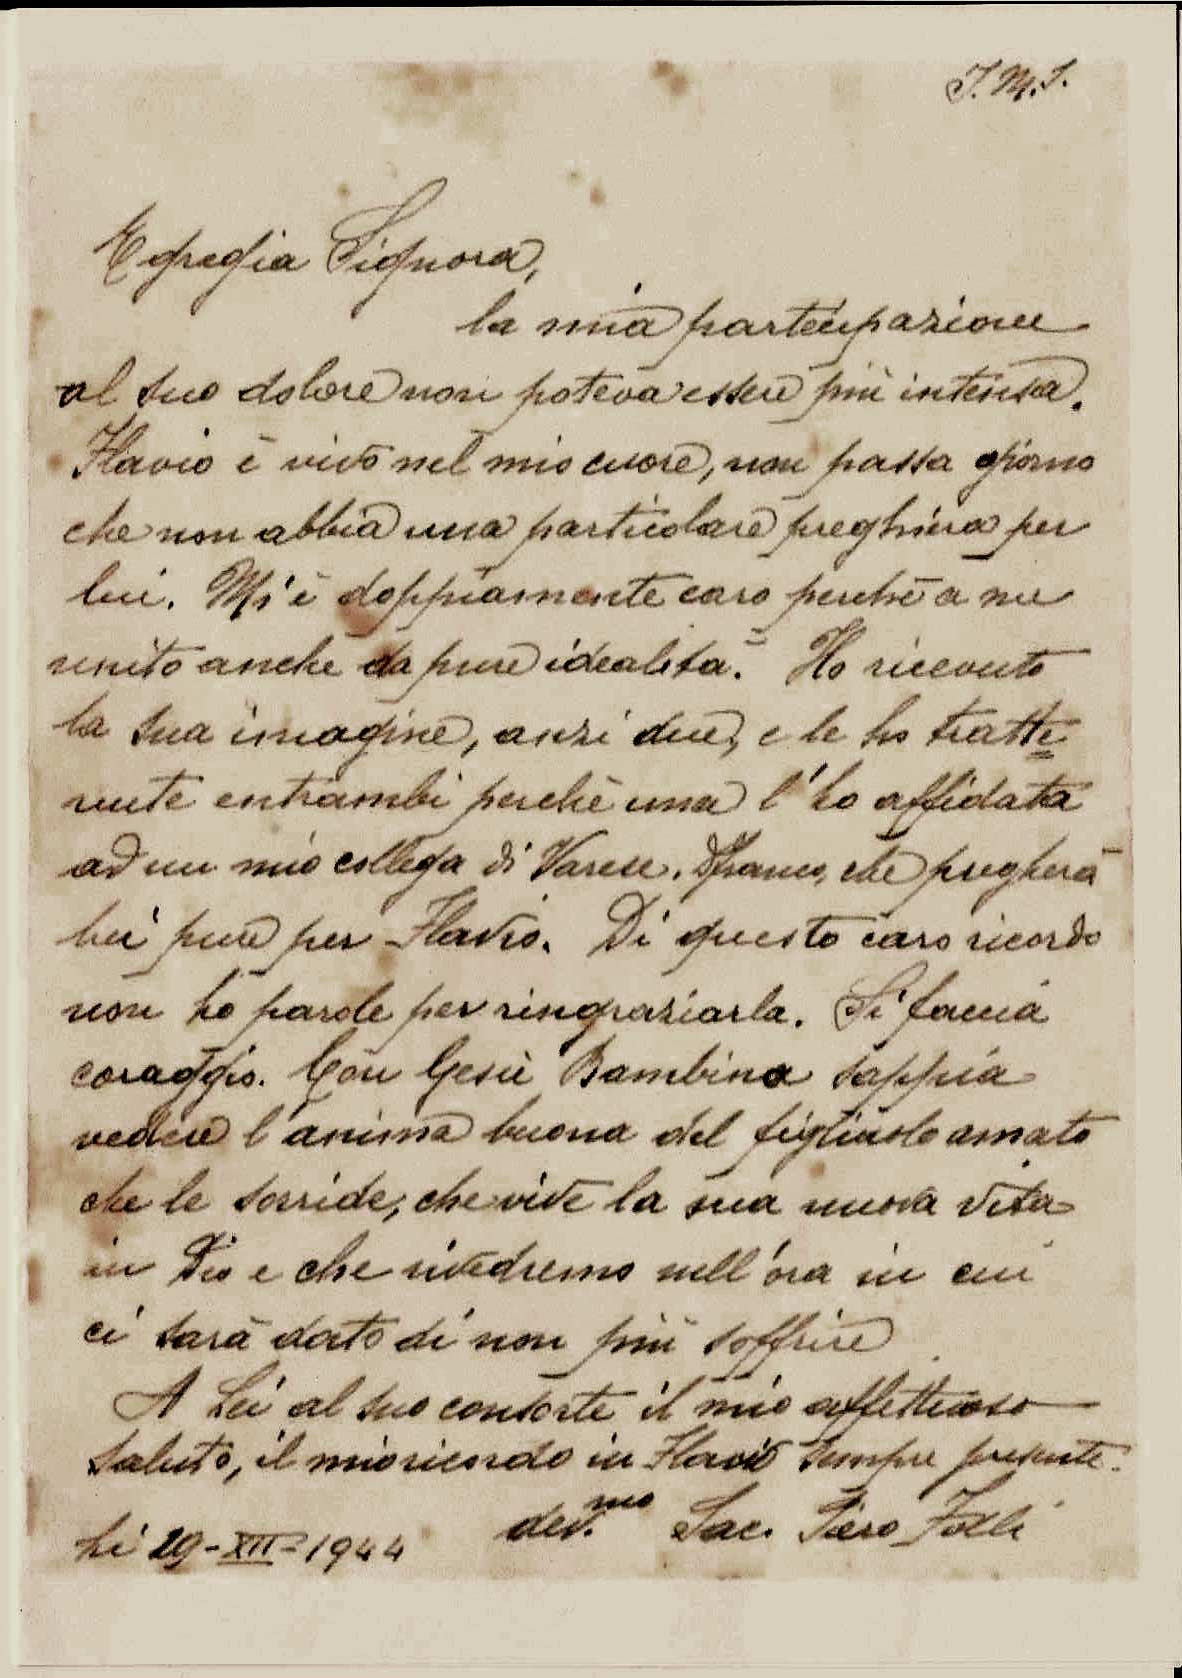 J. M. J.
Egregia Signora,
la mia partecipazione
al suo dolore non poteva essere più intensa.
Flavio è vivo nel mio cuore, non passa giorno
che non abbia una particolare preghiera per
lui. Mi è doppiamente caro perchè a me
unito anche da pure idealità. Ho ricevuto
la sua imagine, anzi due, e le ho tratte=
nute entrambi perchè una l'ho affidata
ad un mio collega di Varese, che pregherà
lui pure per Flavio. Di questo caro ricordo
non ho parole per ringraziarla. Si faccia
coraggio. Con Gesù Bambino sappia
vedere l'anima buona del figliuolo amato
che le sorride, che vive la sua nuova vita
in Dio e che rivedremo nell'ora in cui
ci sarà dato di non più soffrire
A Lei al suo consorte il mio affettuoso
saluto, il mio ricordo in Flavio sempre presente.
dev.mo Sac. Piero Folli
li 29-XII-1944